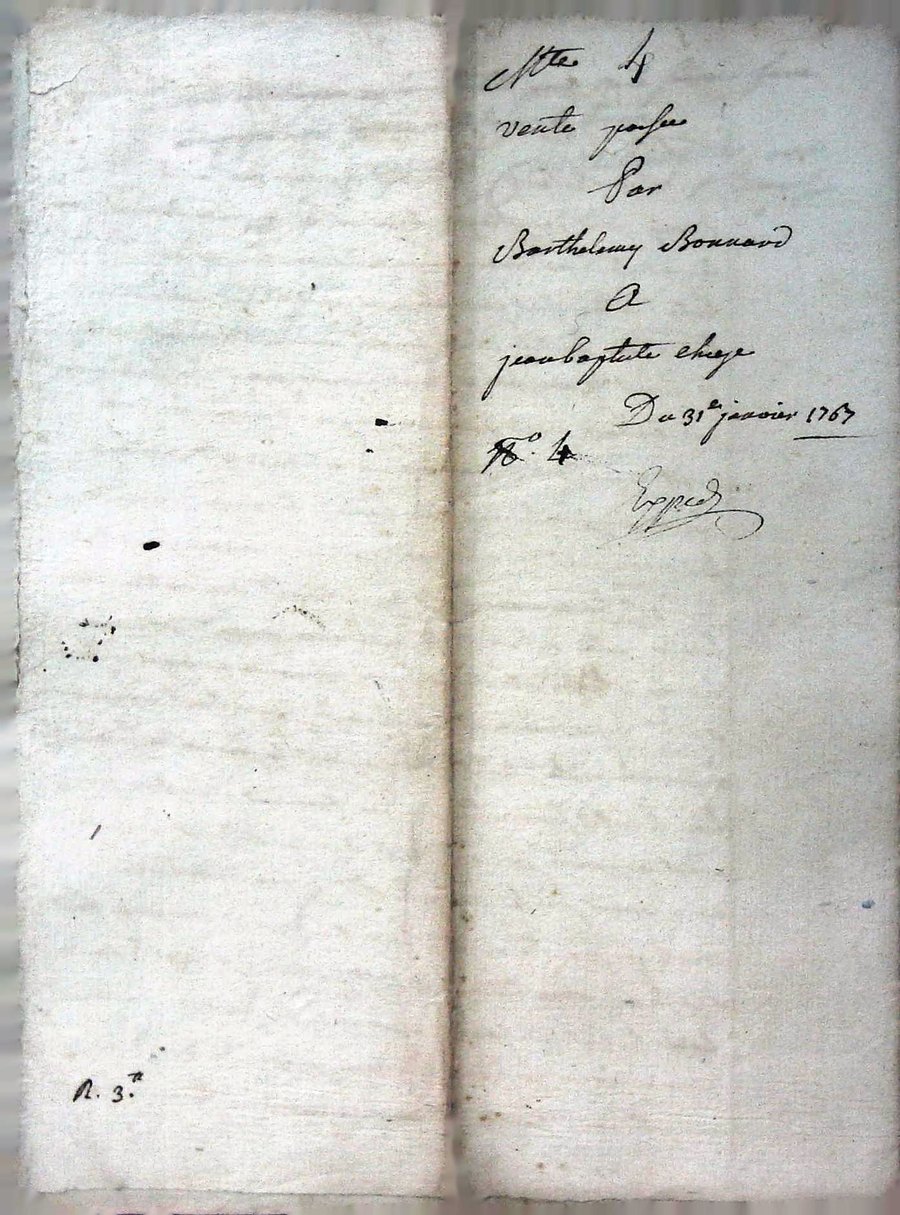 Cotte 4
vente passee
Par
Barthelemy Bonnard
A
jean baptiste chieze
Du 31e janvier 1767
N° 4
Exped
R. 3.tt